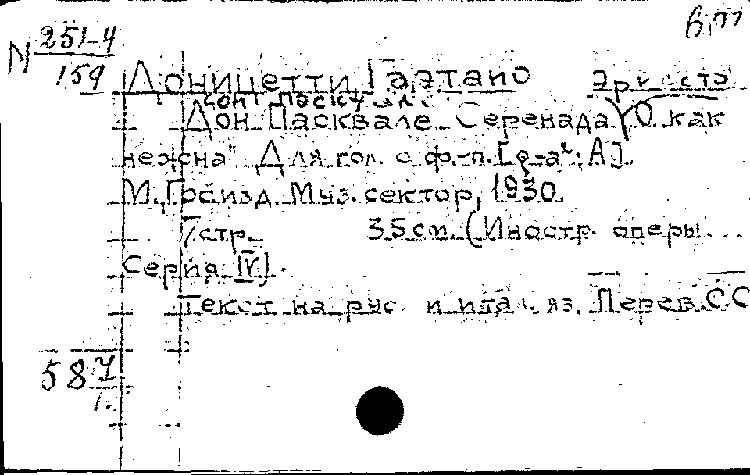 В,П
N 251-4
159
Доницетти, Гаэтано Эрнесто
Дон Паскуале
Дон Пасквале. Серенада "О как
нежна" Для гол. с ф.-п. [g-a²; A].
М. Гос. изд. Муз. сектор, 1930.
7 стр. 35 см. (Иностр. оперы...
Серия IV).
Текст на рус. и итал. яз. Перев. СС
587